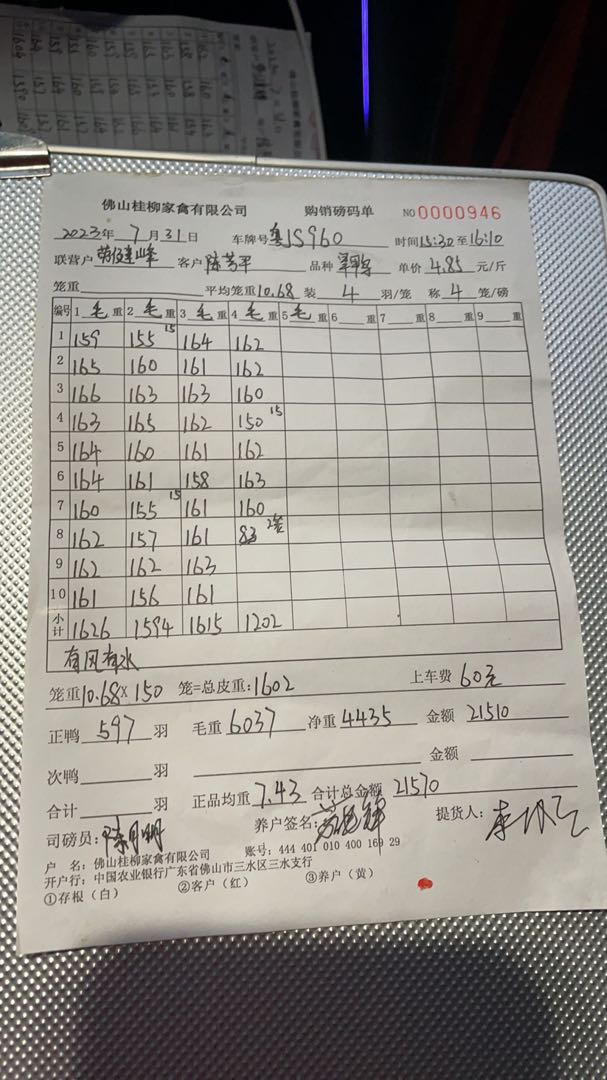 佛山桂柳家禽有限公司 购销磅码单 NO 0000946
2023年 7月 31日 车牌号 粤JS960 时间 15:30 至 16:10
联营户 客户 陈芳平 品种 单价 4.85 元/斤
笼重 平均笼重 10.68 装 4 羽/笼 称 4 笼/磅
编号 1 毛 重 2 毛 重 3 毛 重 4 毛 重 5 毛 重 6 重 7 重 8 重 9 重
1 159 155 15 164 162
2 165 160 161 162
3 166 163 163 160
4 163 165 162 150 15
5 164 160 161 162
6 164 161 158 163
7 160 155 15 161 160
8 162 157 161 83 2笼
9 162 162 163
10 161 156 161
小计 1626 1594 1615 1202
有风有水
笼重 10.68 × 150 笼=总皮重: 1602 上车费 60元
正鸭 597 羽 毛重 6037 净重 4435 金额 21510
次鸭 羽 金额
合计 羽 正品均重 7.43 合计总金额 21570
司磅员: 陈月明 养户签名: 提货人:
户 名: 佛山桂柳家禽有限公司 账号: 444 401 010 400 169 29
开户行: 中国农业银行广东省佛山市三水区三水支行
①存根(白) ②客户(红) ③养户(黄)